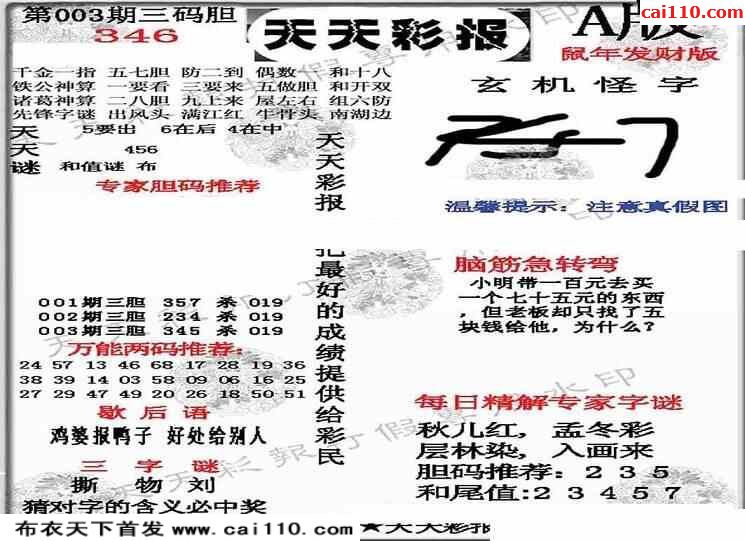 第003期三码胆
346
天天彩报
A版
cai110.com
鼠年发财版
千金一指 五七胆 防二到 偶数 和十八
铁公神算 一要看 三要来 五做胆 和开双
诸葛神算 二八胆 九上来 屋左右 组六防
先锋字谜 出风头 满江红 牛骨头 南湖边
天天谜
5要出 6在后 4在中
456
和值谜 布
专家胆码推荐
天天彩报
玄机怪字
温馨提示：注意真假图
把最好的成绩提供给彩民
001期三胆 357 杀 019
002期三胆 234 杀 019
003期三胆 345 杀 019
万能两码推荐:
24 57 13 46 68 17 28 19 36
38 39 14 03 58 09 06 16 25
27 29 47 49 20 26 18 50 51
歇后语
鸡婆报鸭子 好处给别人
三字谜
撕 物 刘
猜对字的含义必中奖
脑筋急转弯
小明带一百元去买
一个七十五元的东西
，但老板却只找了五
块钱给他，为什么?
每日精解专家字谜
秋儿红，孟冬彩
层林染，入画来
胆码推荐：2 3 5
和尾值:2 3 4 5 7
布衣天下首发 www.cai110.com
★天天彩报